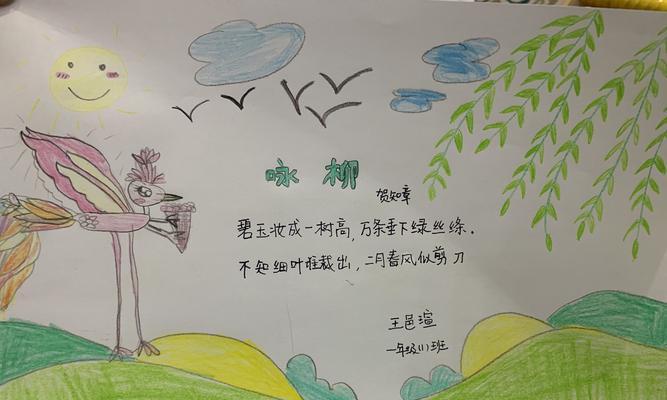 咏柳
贺知章
碧玉妆成一树高,万条垂下绿丝绦.
不知细叶谁裁出,二月春风似剪刀
王邑瑄
一年级(1)班